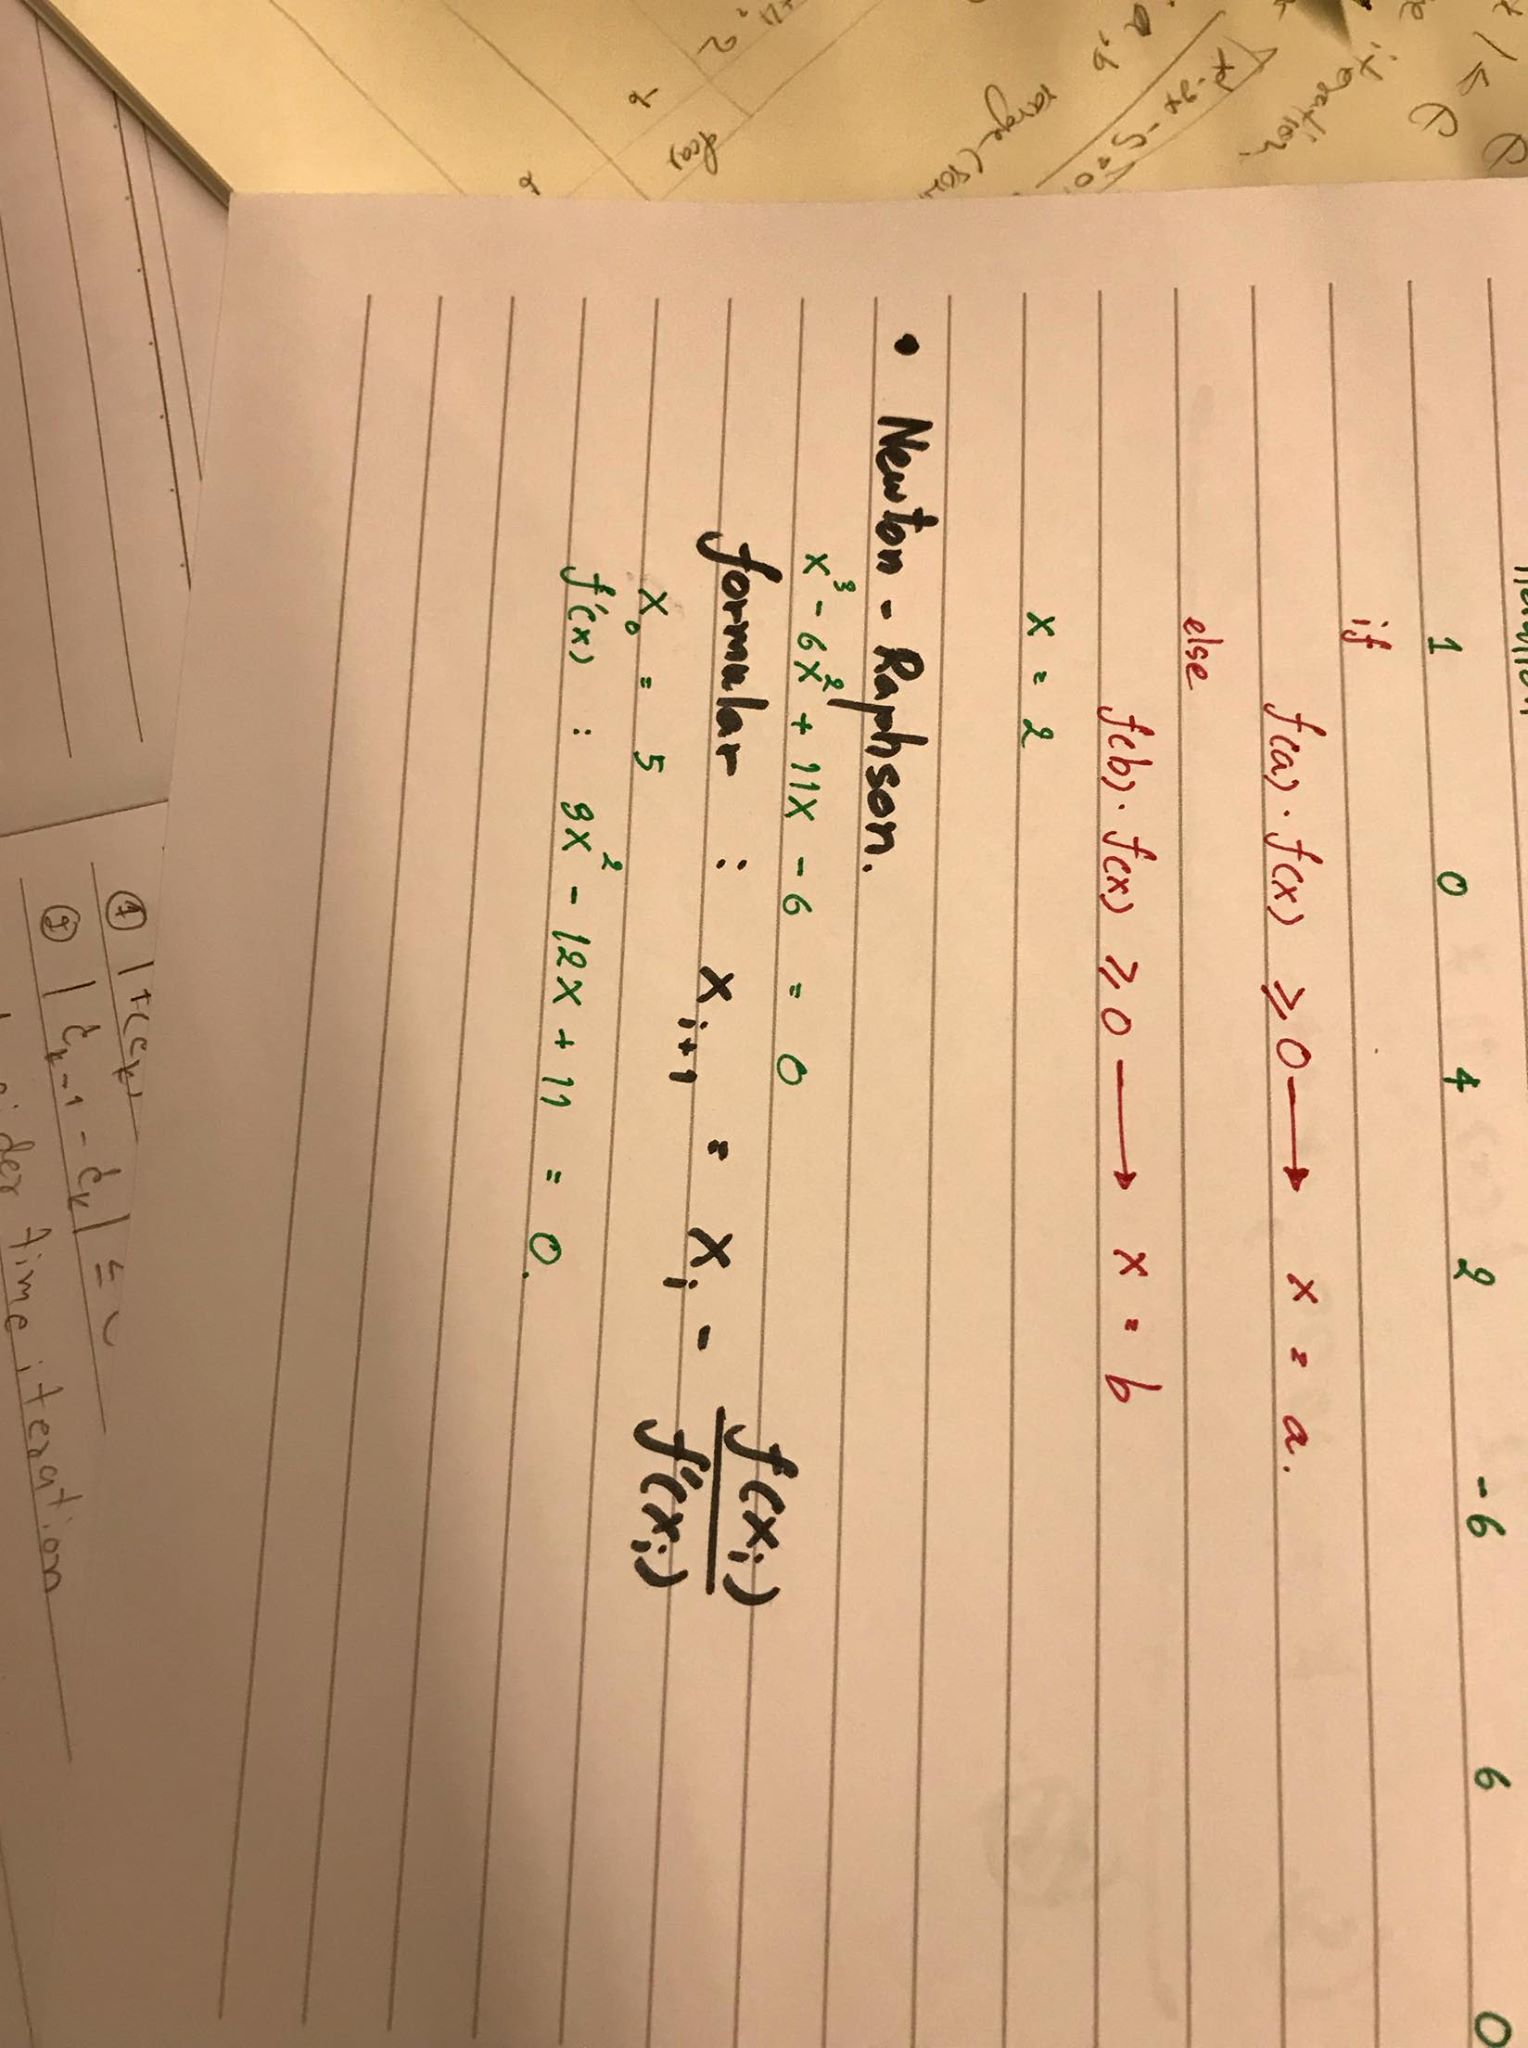 1 0 4 2 -6 6 0
if
f(a) · f(x) ≥ 0 → x = a.
else
f(b) · f(x) ≥ 0 → x = b
x = 2
• Newton - Raphson.
x³ - 6x² + 11x - 6 = 0
formular : x_{i+1} = x_i - f(x_i) / f'(x_i)
x₀ = 5
f'(x) : 9x² - 12x + 11 = 0.
① |f(c_k)
② | c_{k-1} - c_k | ≤
time iteration
iteration
a, b
range (
f(a)
2